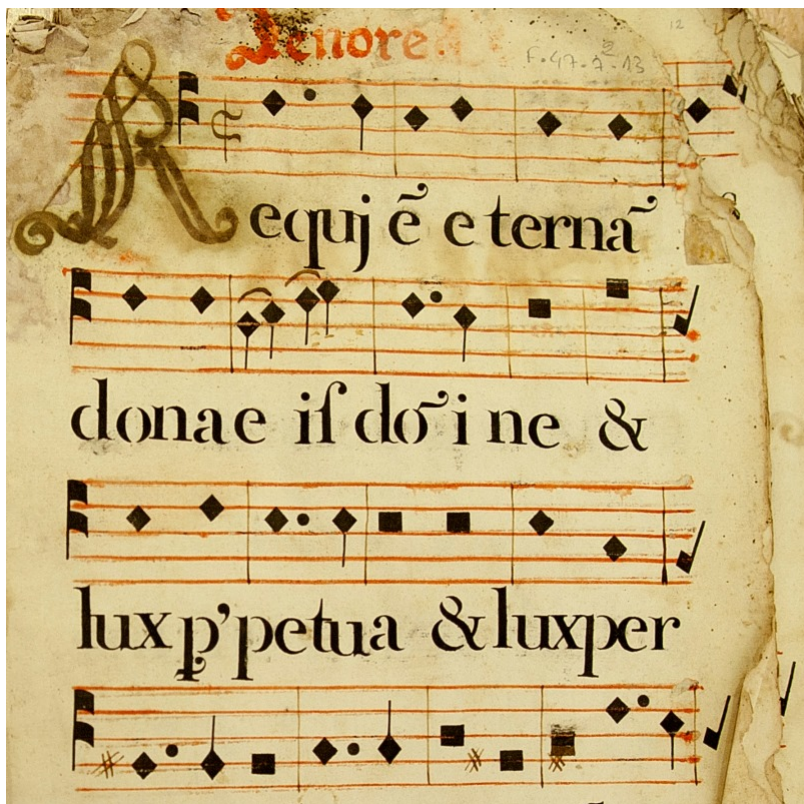 Tenore
12
F. 47. 2. 13
Requj ẽ e ternã
donae iſ dõ i ne &
lux p'petua & lux per